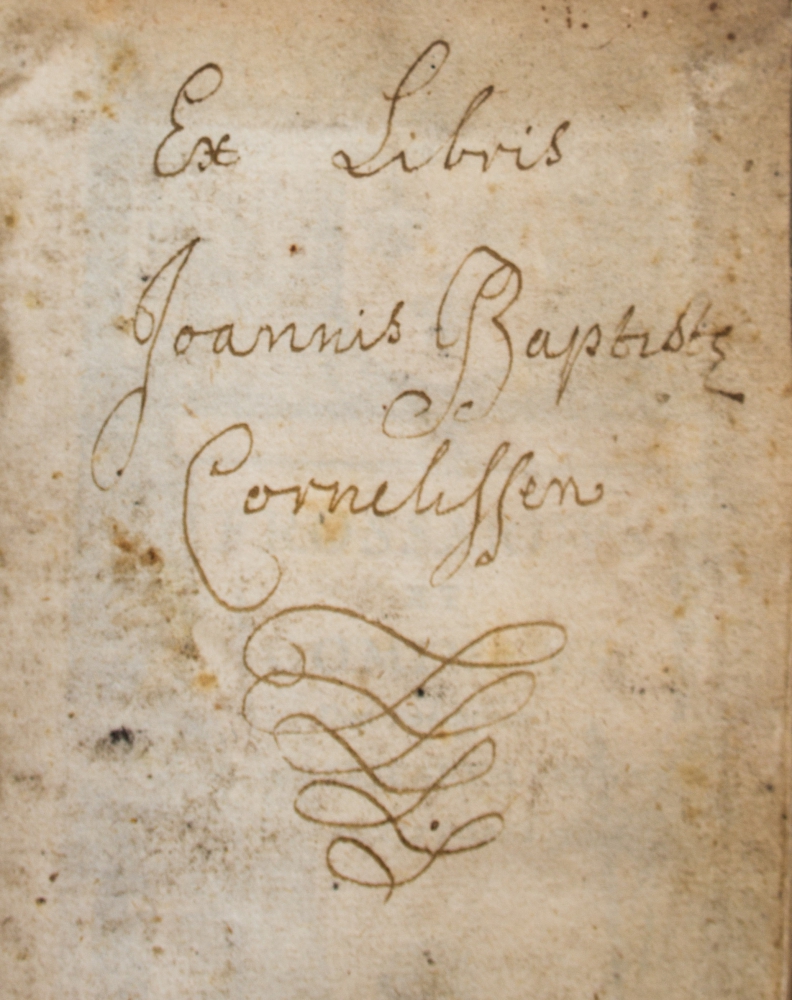 Ex Libris
Joannis Baptistę
Cornelissen